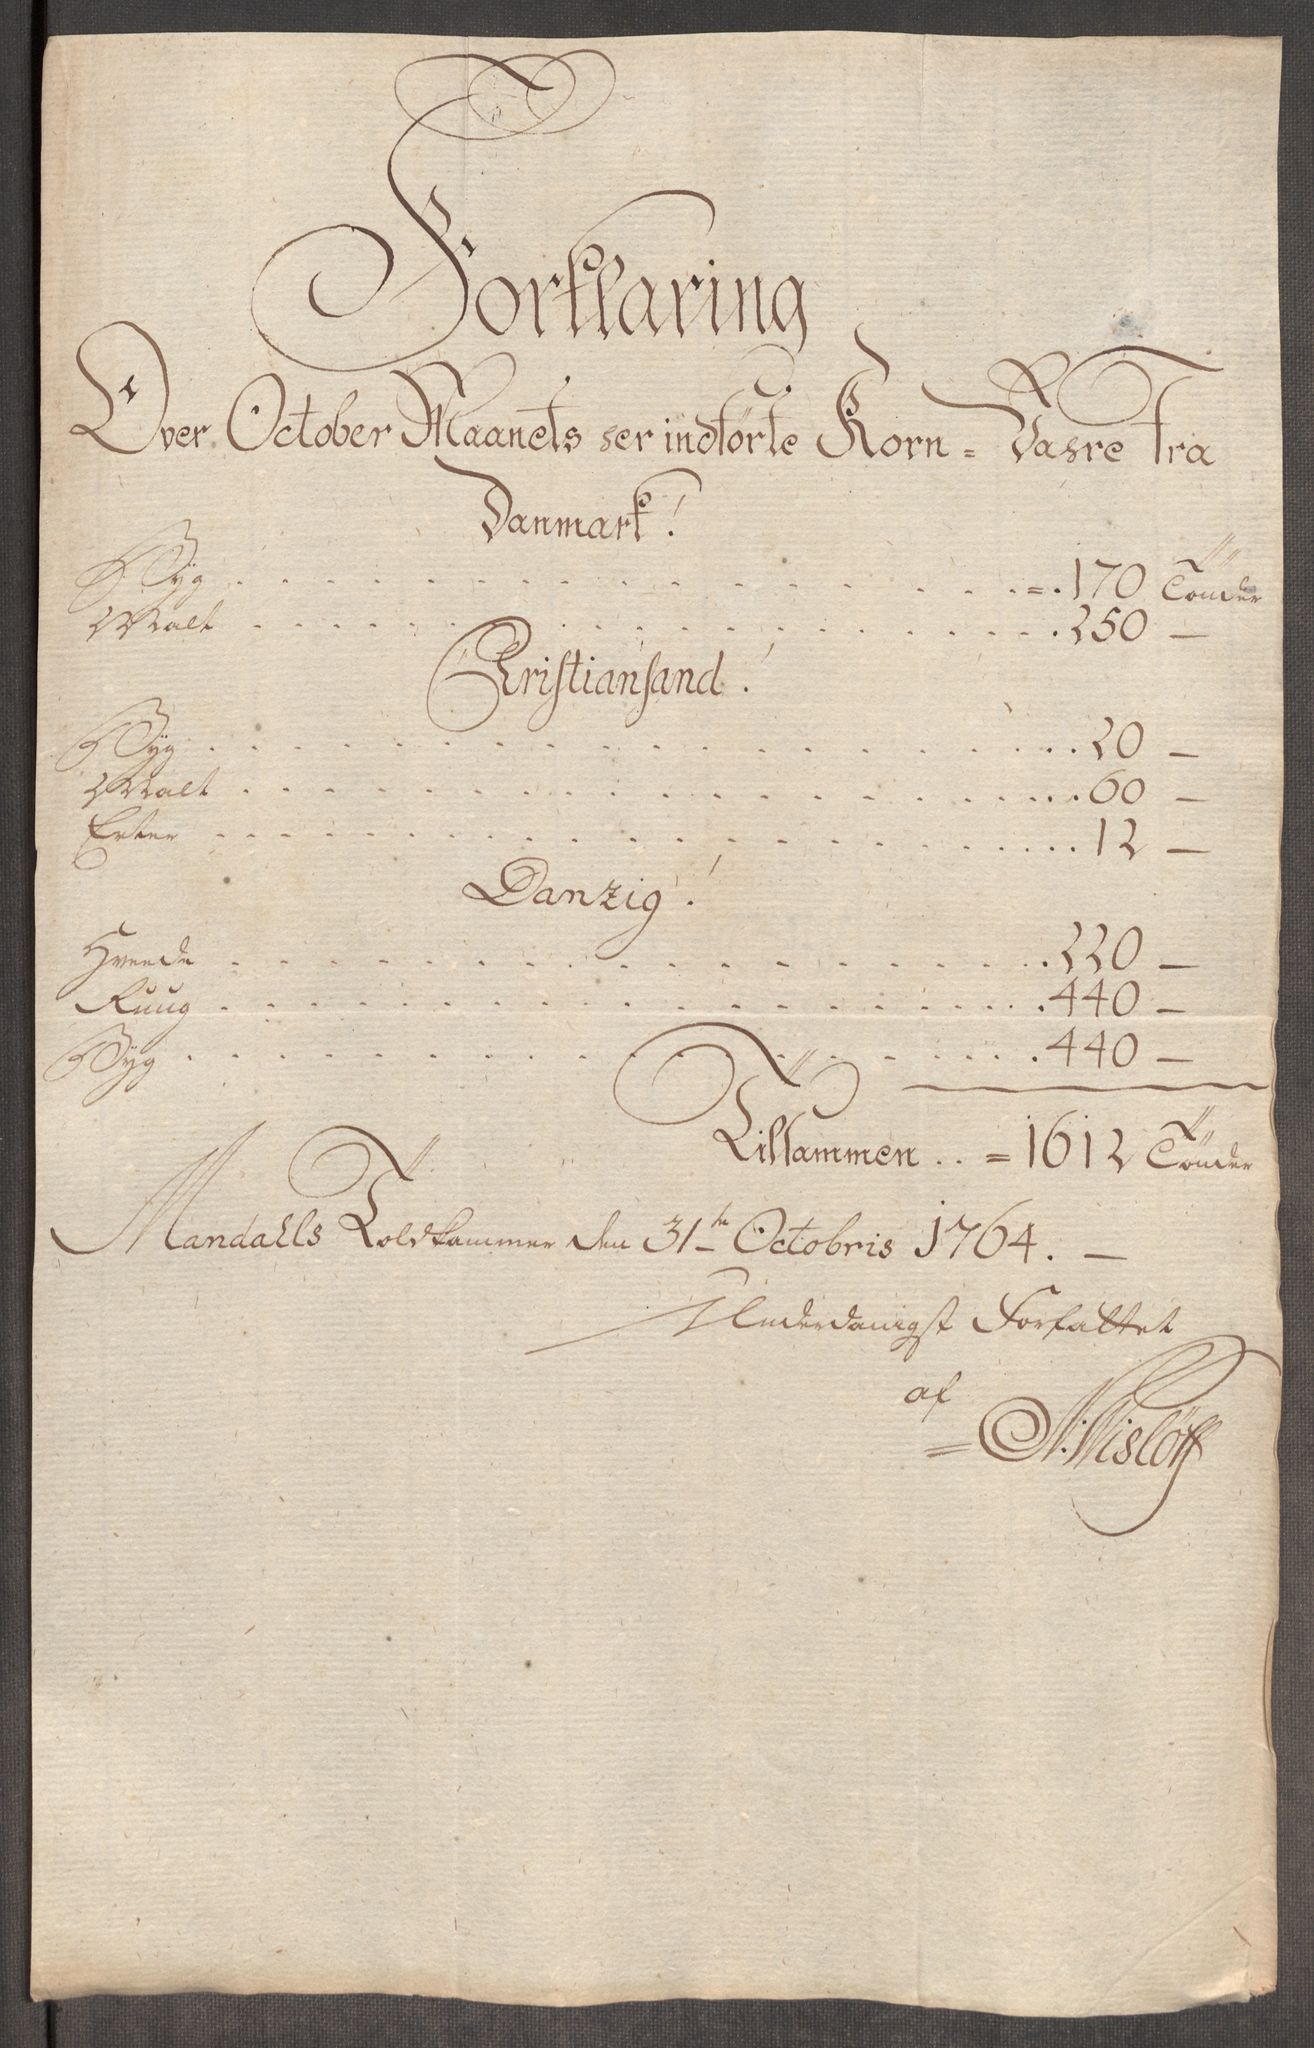 Forklaring
Over October Maanets her indførte Korn = Vahre Fra
Danmark!
Byg . . . . . . . . . . = . 170 Tönder
Malt . . . . . . . . . . 250 —
Christiansand!
Byg . . . . . . . . . . 20 —
Malt . . . . . . . . . . 60 —
Erter . . . . . . . . . . 12 —
Danzig!
Hveede . . . . . . . . . . 220 —
Ruug . . . . . . . . . . 440 —
Byg . . . . . . . . . . 440 —
Tilsammen . . = 1612 Tönder
Mandahls Toldkammer den 31te Octobris 1764. —
Underdanigst Forfattet
af
= N: Nisløff